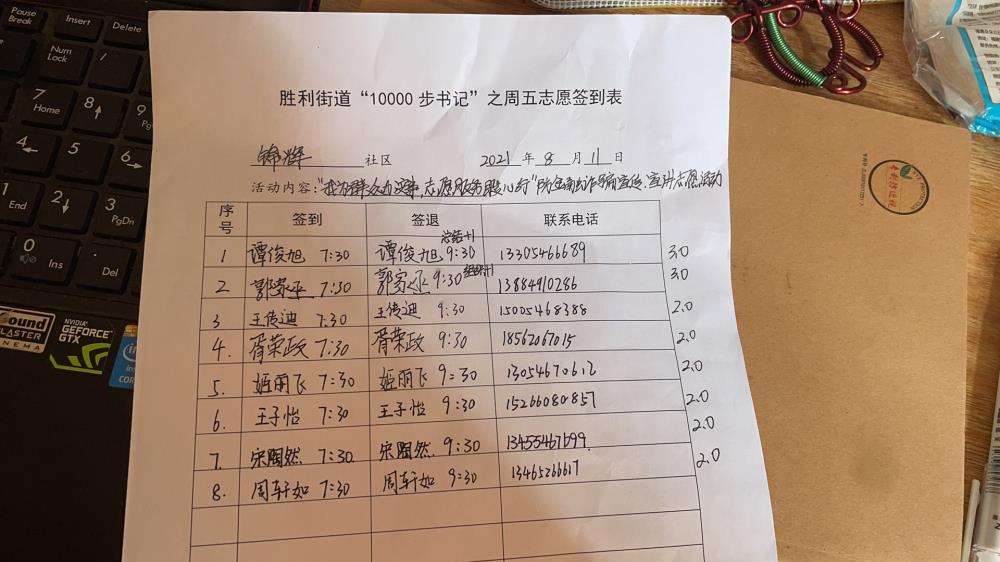 Pause
Break
Insert
Delete
Num
Lock
7
Home
8
9
PgUp
4
5
6
1
End
2
3
PgDn
0
Ins
Del
NVIDIA
GEFORCE
GTX
intel
CORE
胜利街道“10000步书记”之周五志愿签到表
锦辉 社区 2021 年 8 月 11 日
活动内容:“我为群众办实事,志愿服务暖心行”
序号 签到 签退 联系电话
总结+1
1 谭俊旭 7:30 谭俊旭 9:30 13305466689 3.0
2 郭家丞 7:30 郭家丞 9:30 组织+1 13884910286 3.0
3 王传迪 7:30 王传迪 9:30 15005468388 2.0
4. 胥荣政 7:30 胥荣政 9:30 18562067015 2.0
5. 姬丽飞 7:30 姬丽飞 9:30 13054670612 2.0
6. 王子怡 7:30 王子怡 9:30 15266080857 2.0
7. 宋陶然 7:30 宋陶然 9:30 13455467699 2.0
8. 周轩如 7:30 周轩如 9:30 13465266617 2.0